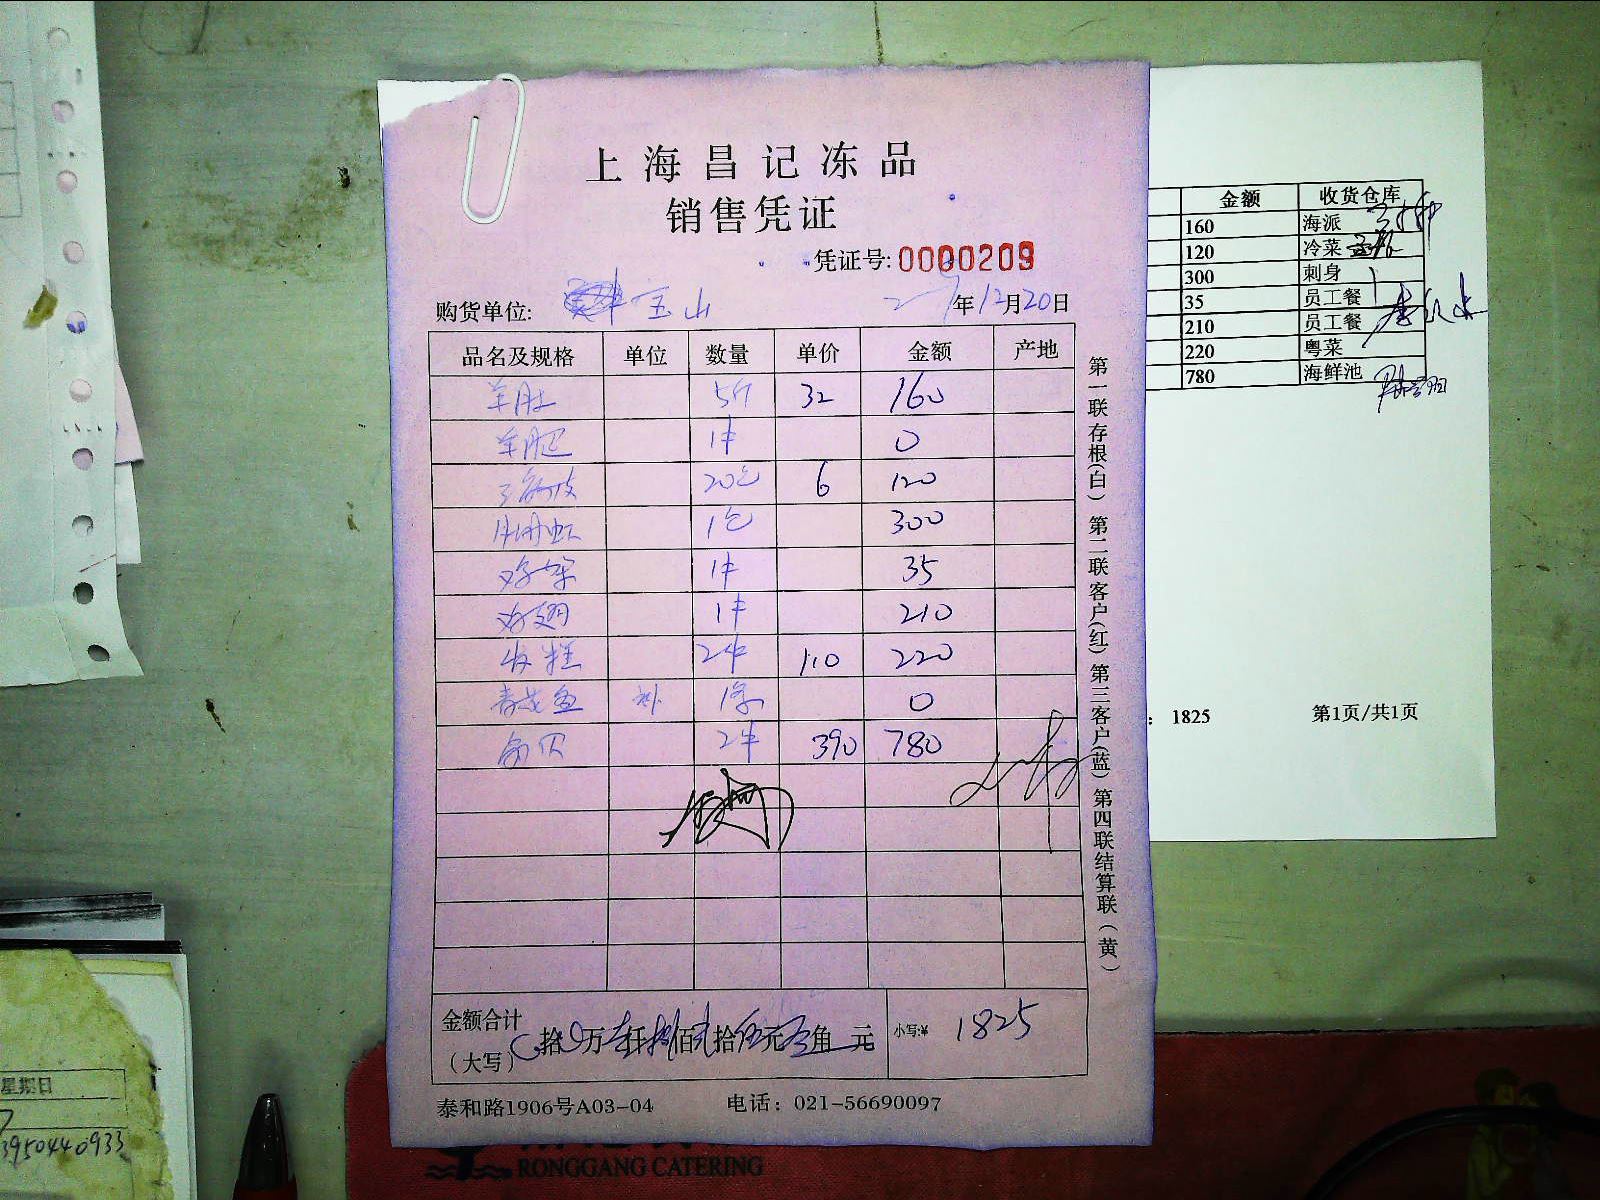 上海昌记冻品
销售凭证
凭证号: 0000209
购货单位: 宝山 年12月20日
品名及规格 单位 数量 单价 金额 产地
羊肚 5斤 32 160
羊肚 1件 0
20包 6 120
1包 300
鸡架 1件 35
鸡翅 1件 210
年糕 2件 110 220
青花鱼 补 1条 0
扇贝 2件 390 780
金额合计
(大写) 拾 万 仟 佰 拾 元 角 元 小写:¥ 1825
泰和路1906号A03-04 电话: 021-56690097
第一联存根(白) 第二联客户(红) 第三客户(蓝) 第四联结算联(黄)
金额 收货仓库
160 海派
120 冷菜
300 刺身
35 员工餐
210 员工餐
220 粤菜
780 海鲜池
: 1825 第1页/共1页
星期日
3950440933
RONGGANG CATERING